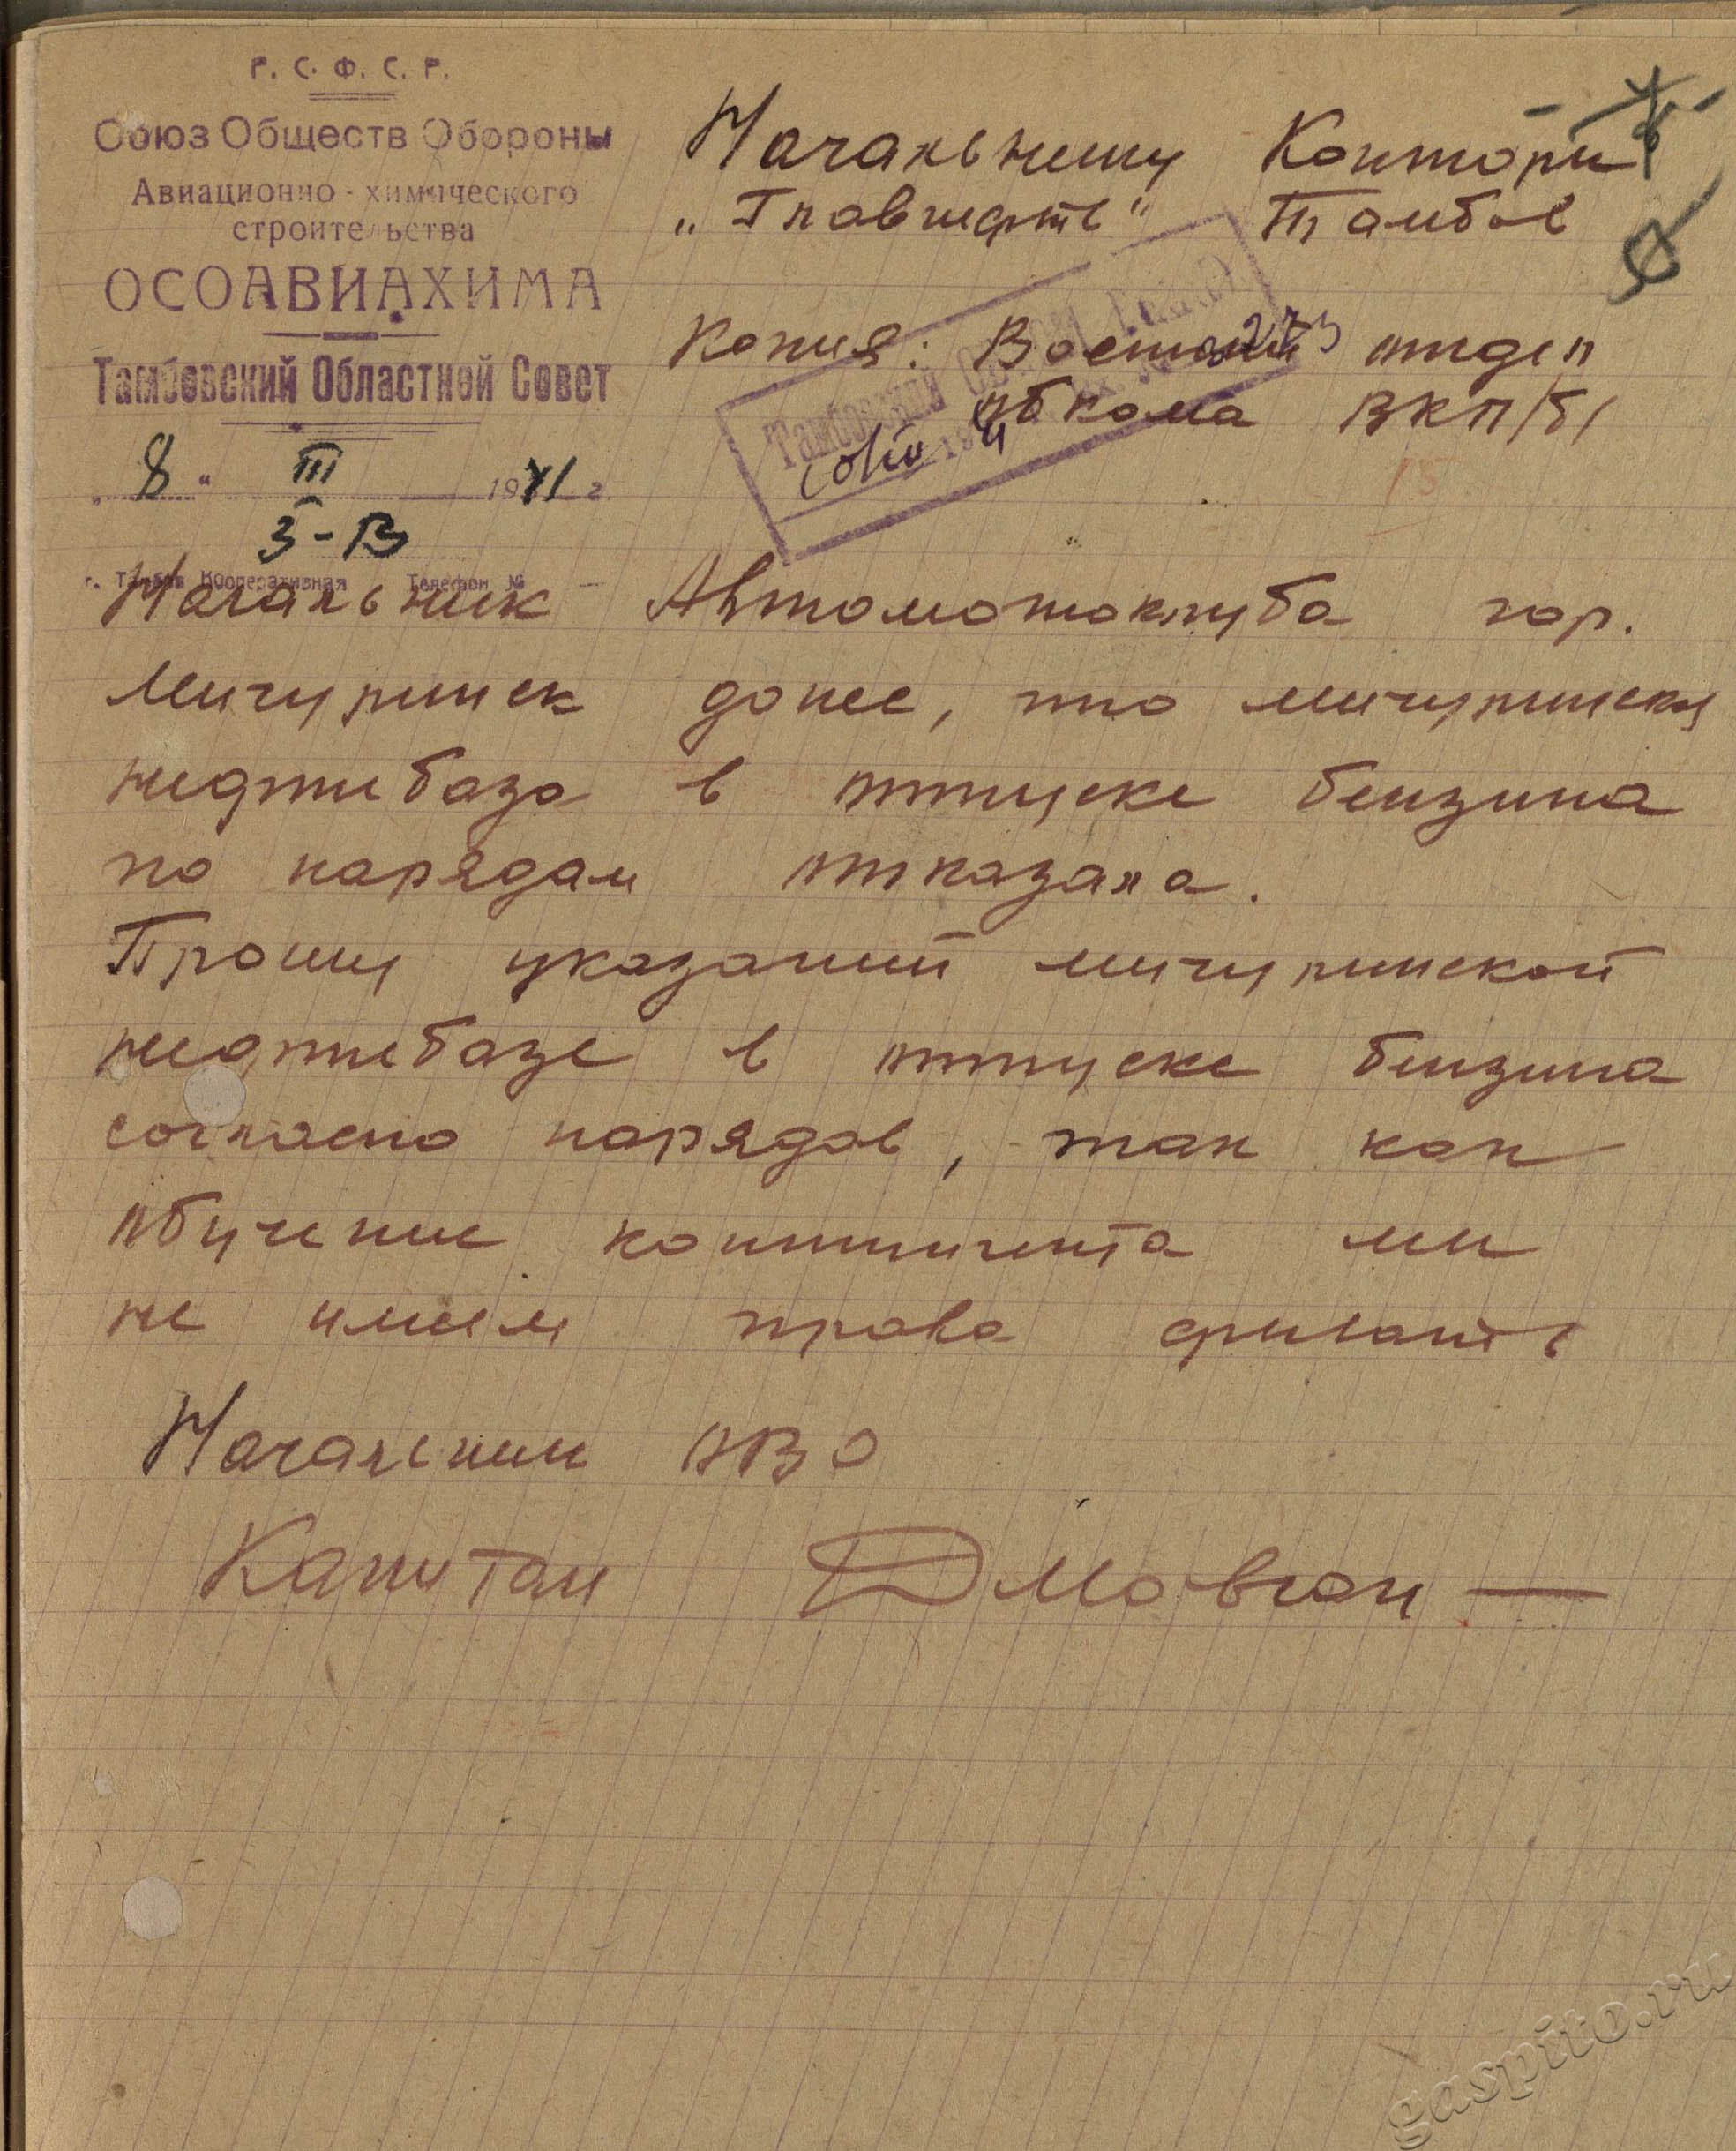 Р. С. Ф. С. Р.
Союз Обществ Обороны
Авиационно-химического
строительства
ОСОАВИАХИМА
Тамбовский Областной Совет
„8“ III 1941 г.
3-В
г. Тамбов Кооперативная Телефон №
Начальнику Конторы
„Главнефть“ Тамбов
Копия: Военный отдел
обкома ВКП/б/
Тамбовский
15
Начальник Автомотоклуба гор.
Мичуринск донес, что мичуринская
нефтебаза в отпуске бензина
по нарядам отказала.
Прошу указаний мичуринской
нефтебазе в отпуске бензина
согласно нарядов, так как
обучение контингента мы
не имеем права срывать
Начальник ОВО
Капитан
gaspito.ru